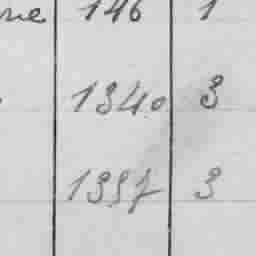 ne 146 1
1340 3
1357 3